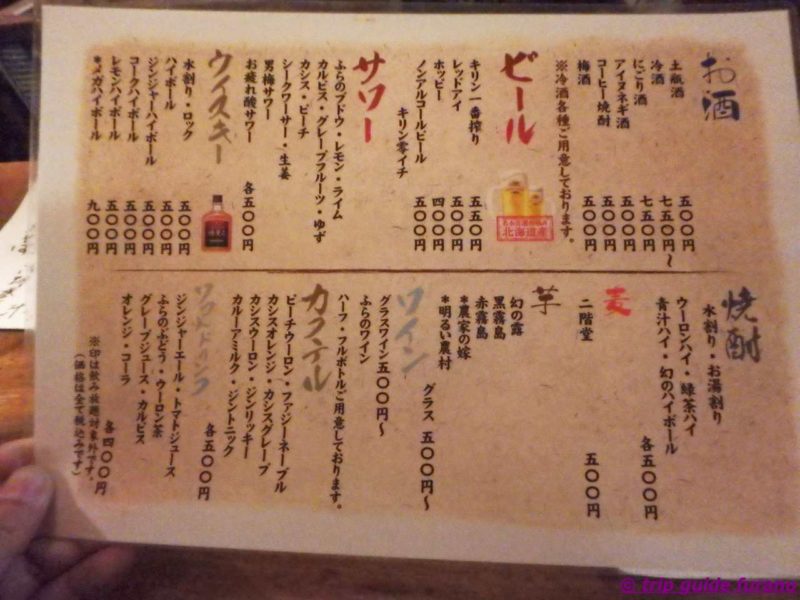 お酒
土瓶酒 五〇〇円
冷酒 七五〇円〜
にごり酒 七五〇円
アイヌネギ酒 五〇〇円
コーヒー焼酎 五〇〇円
梅酒 五〇〇円
※冷酒各種ご用意しております。
ビール
北海道産
キリン一番搾り 五五〇円
レッドアイ 五〇〇円
ホッピー 四〇〇円
ノンアルコールビール 五〇〇円
キリン零イチ
サワー
ふらのブドウ・レモン・ライム
カルピス・グレープフルーツ・ゆず
カシス・ピーチ
シークワーサー・生姜
男梅サワー
お疲れ酸サワー 各五〇〇円
ウイスキー
水割り・ロック 五〇〇円
ハイボール 五〇〇円
ジンジャーハイボール 五〇〇円
コークハイボール 五〇〇円
レモンハイボール 五〇〇円
*メガハイボール 九〇〇円
焼酎
水割り・お湯割り
ウーロンハイ・緑茶ハイ
青汁ハイ・幻のハイボール
各五〇〇円
麦
二階堂 五〇〇円
芋
幻の露
黒霧島
赤霧島
*農家の嫁
*明るい農村
グラス 五〇〇円〜
ワイン
グラスワイン五〇〇円〜
ふらのワイン
ハーフ・フルボトルご用意しております。
カクテル
ピーチウーロン・ファジーネーブル
カシスオレンジ・カシスグレープ
カシスウーロン・ジンリッキー
カルーアミルク・ジントニック
各五〇〇円
ソフトドリンク
ジンジャーエール・トマトジュース
ふらのぶどう・ウーロン茶
グレープジュース・カルピス
オレンジ・コーラ
各四〇〇円
※印は飲み放題対象外です。
（価格は全て税込みです）
© trip guide furano